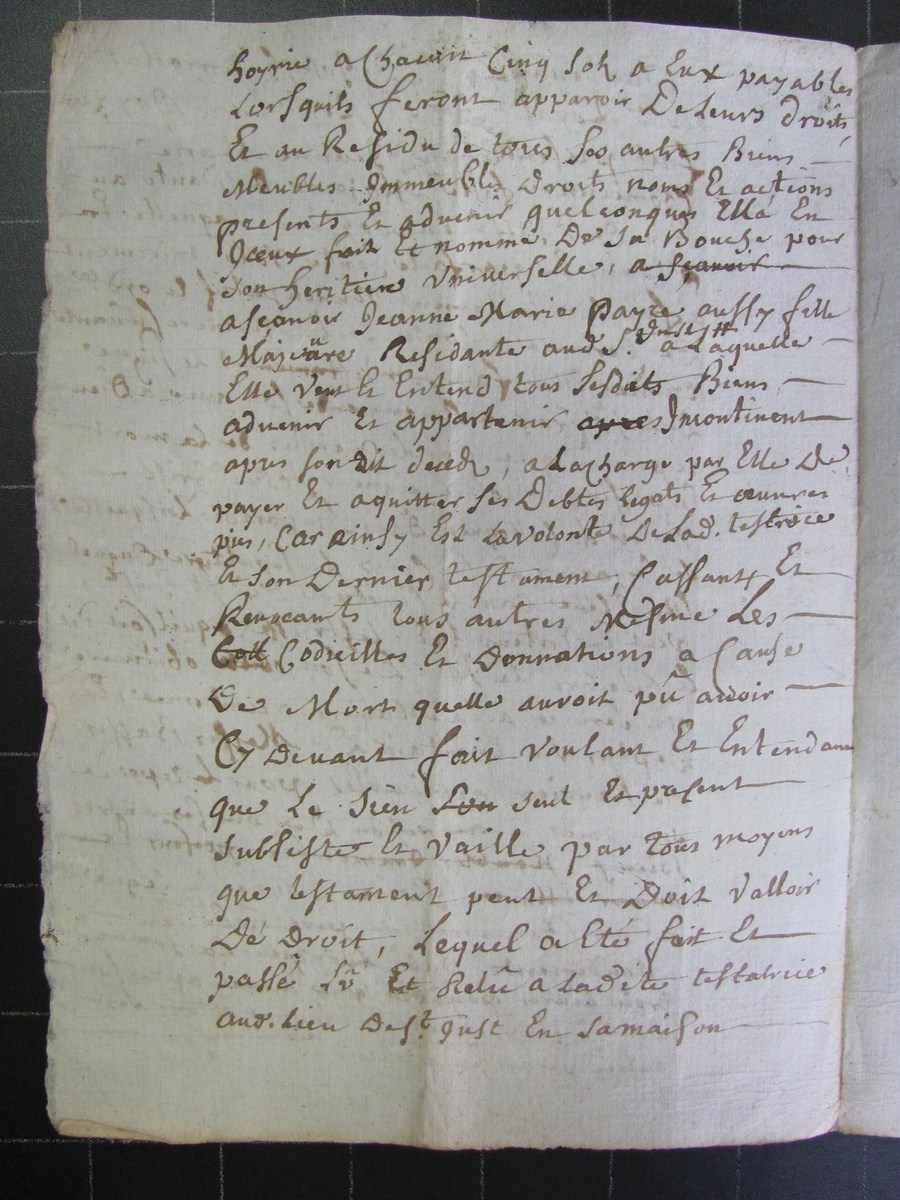 hoyrie a Chacun Cinq sols a Eux payables
Lorsquils feront apparoir De Leurs droits,
Et au Residu de tous ses autres Biens
Meubles Immeubles Droits noms Et actions
presents Et advenir quelconques Ella En
Jceux fait Et nommé De sa Bouche pour
son heritière Universelle, a sçavoir
asçavoir Jeanne Marie Payre aussy fille
Majeure Residante aud S.t Just a Laquelle
Elle Veut Et Entend tous sesdits Biens
advenir Et appartenir apres Incontinent
apres son dit deceds, a La charge par Elle De
payer Et aquitter ses Debtes legats Et œuvres
pies, Car ainsy Est La volonté De Lad. testrice
Et son Dernier testament, Cassant Et
Revocants tous autres Mesme Les
Codicilles Et Donnations a Cause
De Mort quelle auroit pû avoir
Cy Devant fait voulant Et Entendant
que Le sien seul Et present
subsiste Et Vaille par tous moyens
que testament peut Et Doit Valloir
De droit, Lequel a Eté fait Et
passé Lû Et Relû a Ladite testatrice
aud. Lieu De S.t Just En sa maison